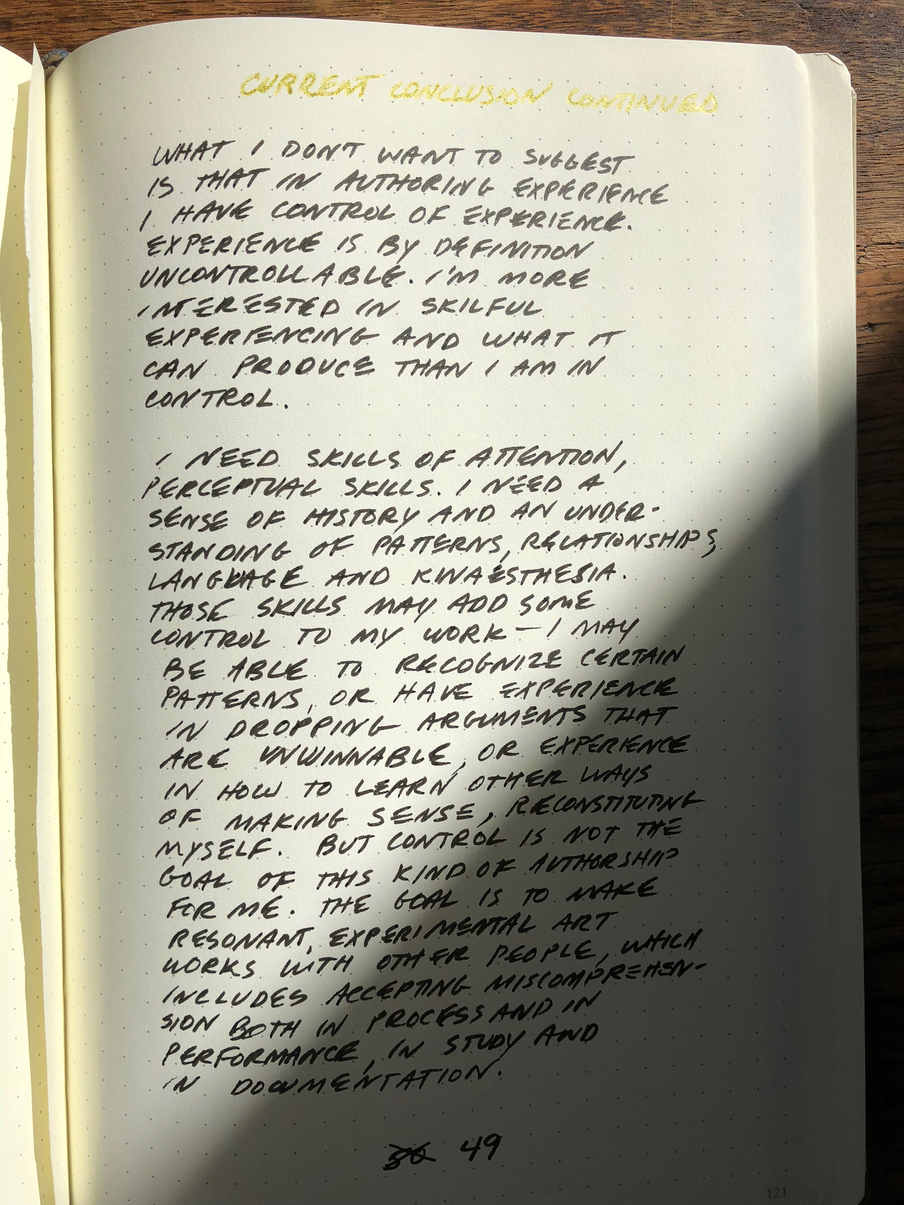 CURRENT CONCLUSION CONTINUED
WHAT I DON'T WANT TO SUGGEST
IS THAT IN AUTHORING EXPERIENCE
I HAVE CONTROL OF EXPERIENCE.
EXPERIENCE IS BY DEFINITION
UNCONTROLLABLE. I'M MORE
INTERESTED IN SKILFUL
EXPERIENCING AND WHAT IT
CAN PRODUCE THAN I AM IN
CONTROL.
I NEED SKILLS OF ATTENTION,
PERCEPTUAL SKILLS. I NEED A
SENSE OF HISTORY AND AN UNDER-
STANDING OF PATTERNS, RELATIONSHIPS,
LANGUAGE AND KINAESTHESIA.
THOSE SKILLS MAY ADD SOME
CONTROL TO MY WORK – I MAY
BE ABLE TO RECOGNIZE CERTAIN
PATTERNS, OR HAVE EXPERIENCE
IN DROPPING ARGUMENTS THAT
ARE UNWINNABLE, OR EXPERIENCE
IN HOW TO LEARN OTHER WAYS
OF MAKING SENSE, RECONSTITUTING
MYSELF. BUT CONTROL IS NOT THE
GOAL OF THIS KIND OF AUTHORSHIP
FOR ME. THE GOAL IS TO MAKE
RESONANT, EXPERIMENTAL ART
WORKS WITH OTHER PEOPLE, WHICH
INCLUDES ACCEPTING MISCOMPREHEN-
SION BOTH IN PROCESS AND IN
PERFORMANCE, IN STUDY AND
IN DOCUMENTATION.
49
121